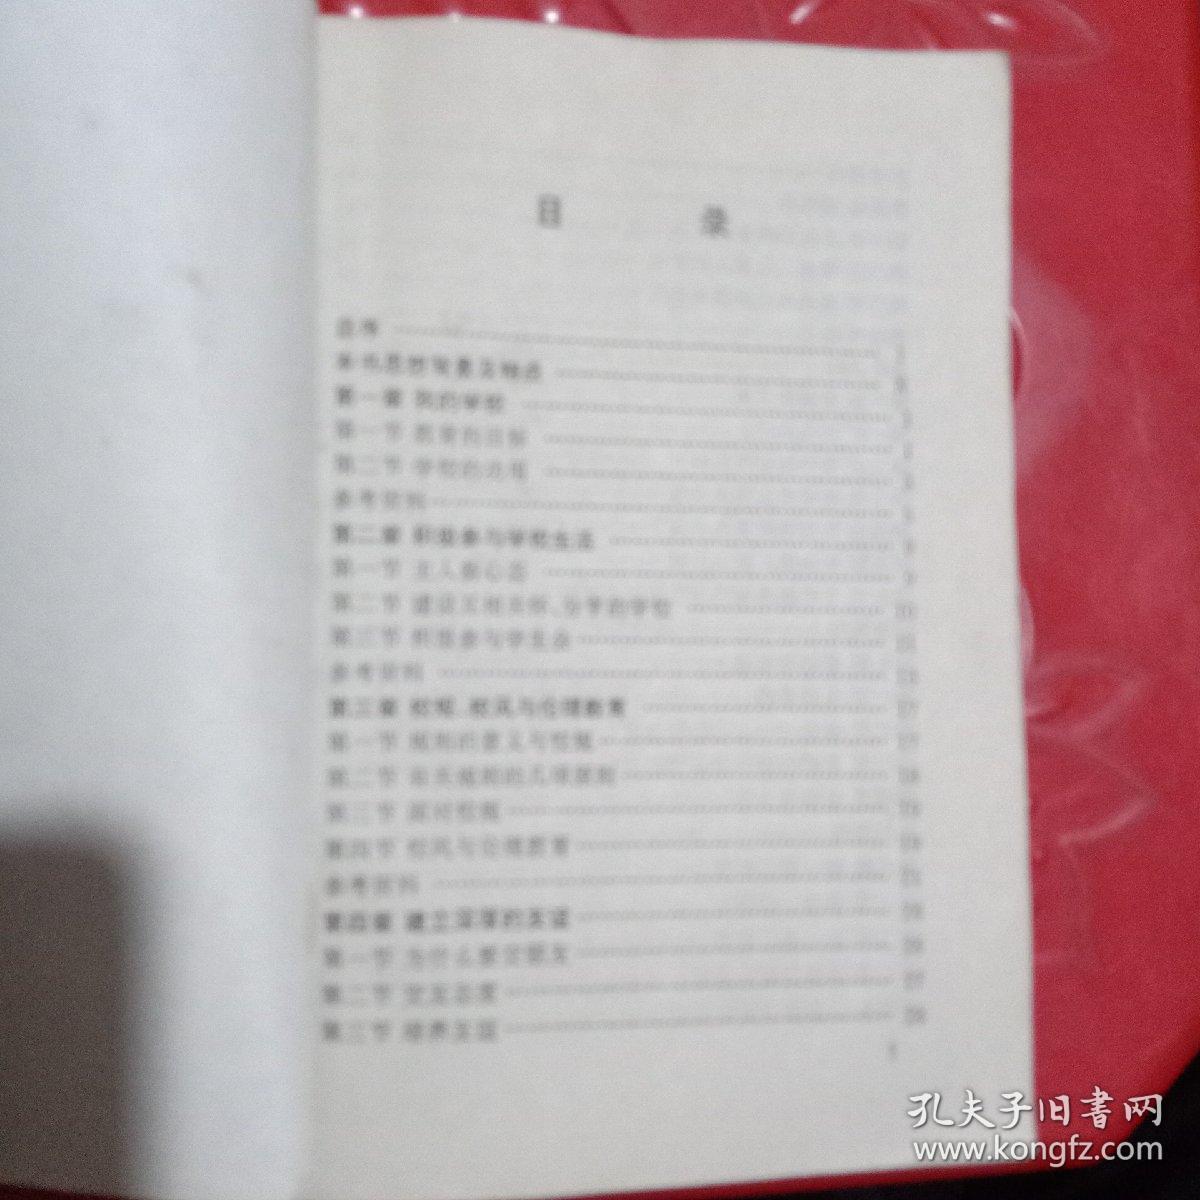 目 录
自序
本书思想背景及特点
第一章 我的学校
第一节 教育的目标
第二节 学校的功用
参考资料
第二章 积极参与学校生活
第一节 主人翁心态
第二节 建设互相关怀、分享的学校
第三节 积极参与学生会
参考资料
第三章 校规、校风与伦理教育 17
第一节 规则的意义与性质 17
第二节 有关规则的几项原则
第三节 面对校规
第四节 校风与伦理教育
参考资料
第四章 建立深厚的友谊
第一节 为什么要交朋友
第二节 交友态度 27
第三节 培养友谊
1
孔夫子旧書网
www.kongfz.com